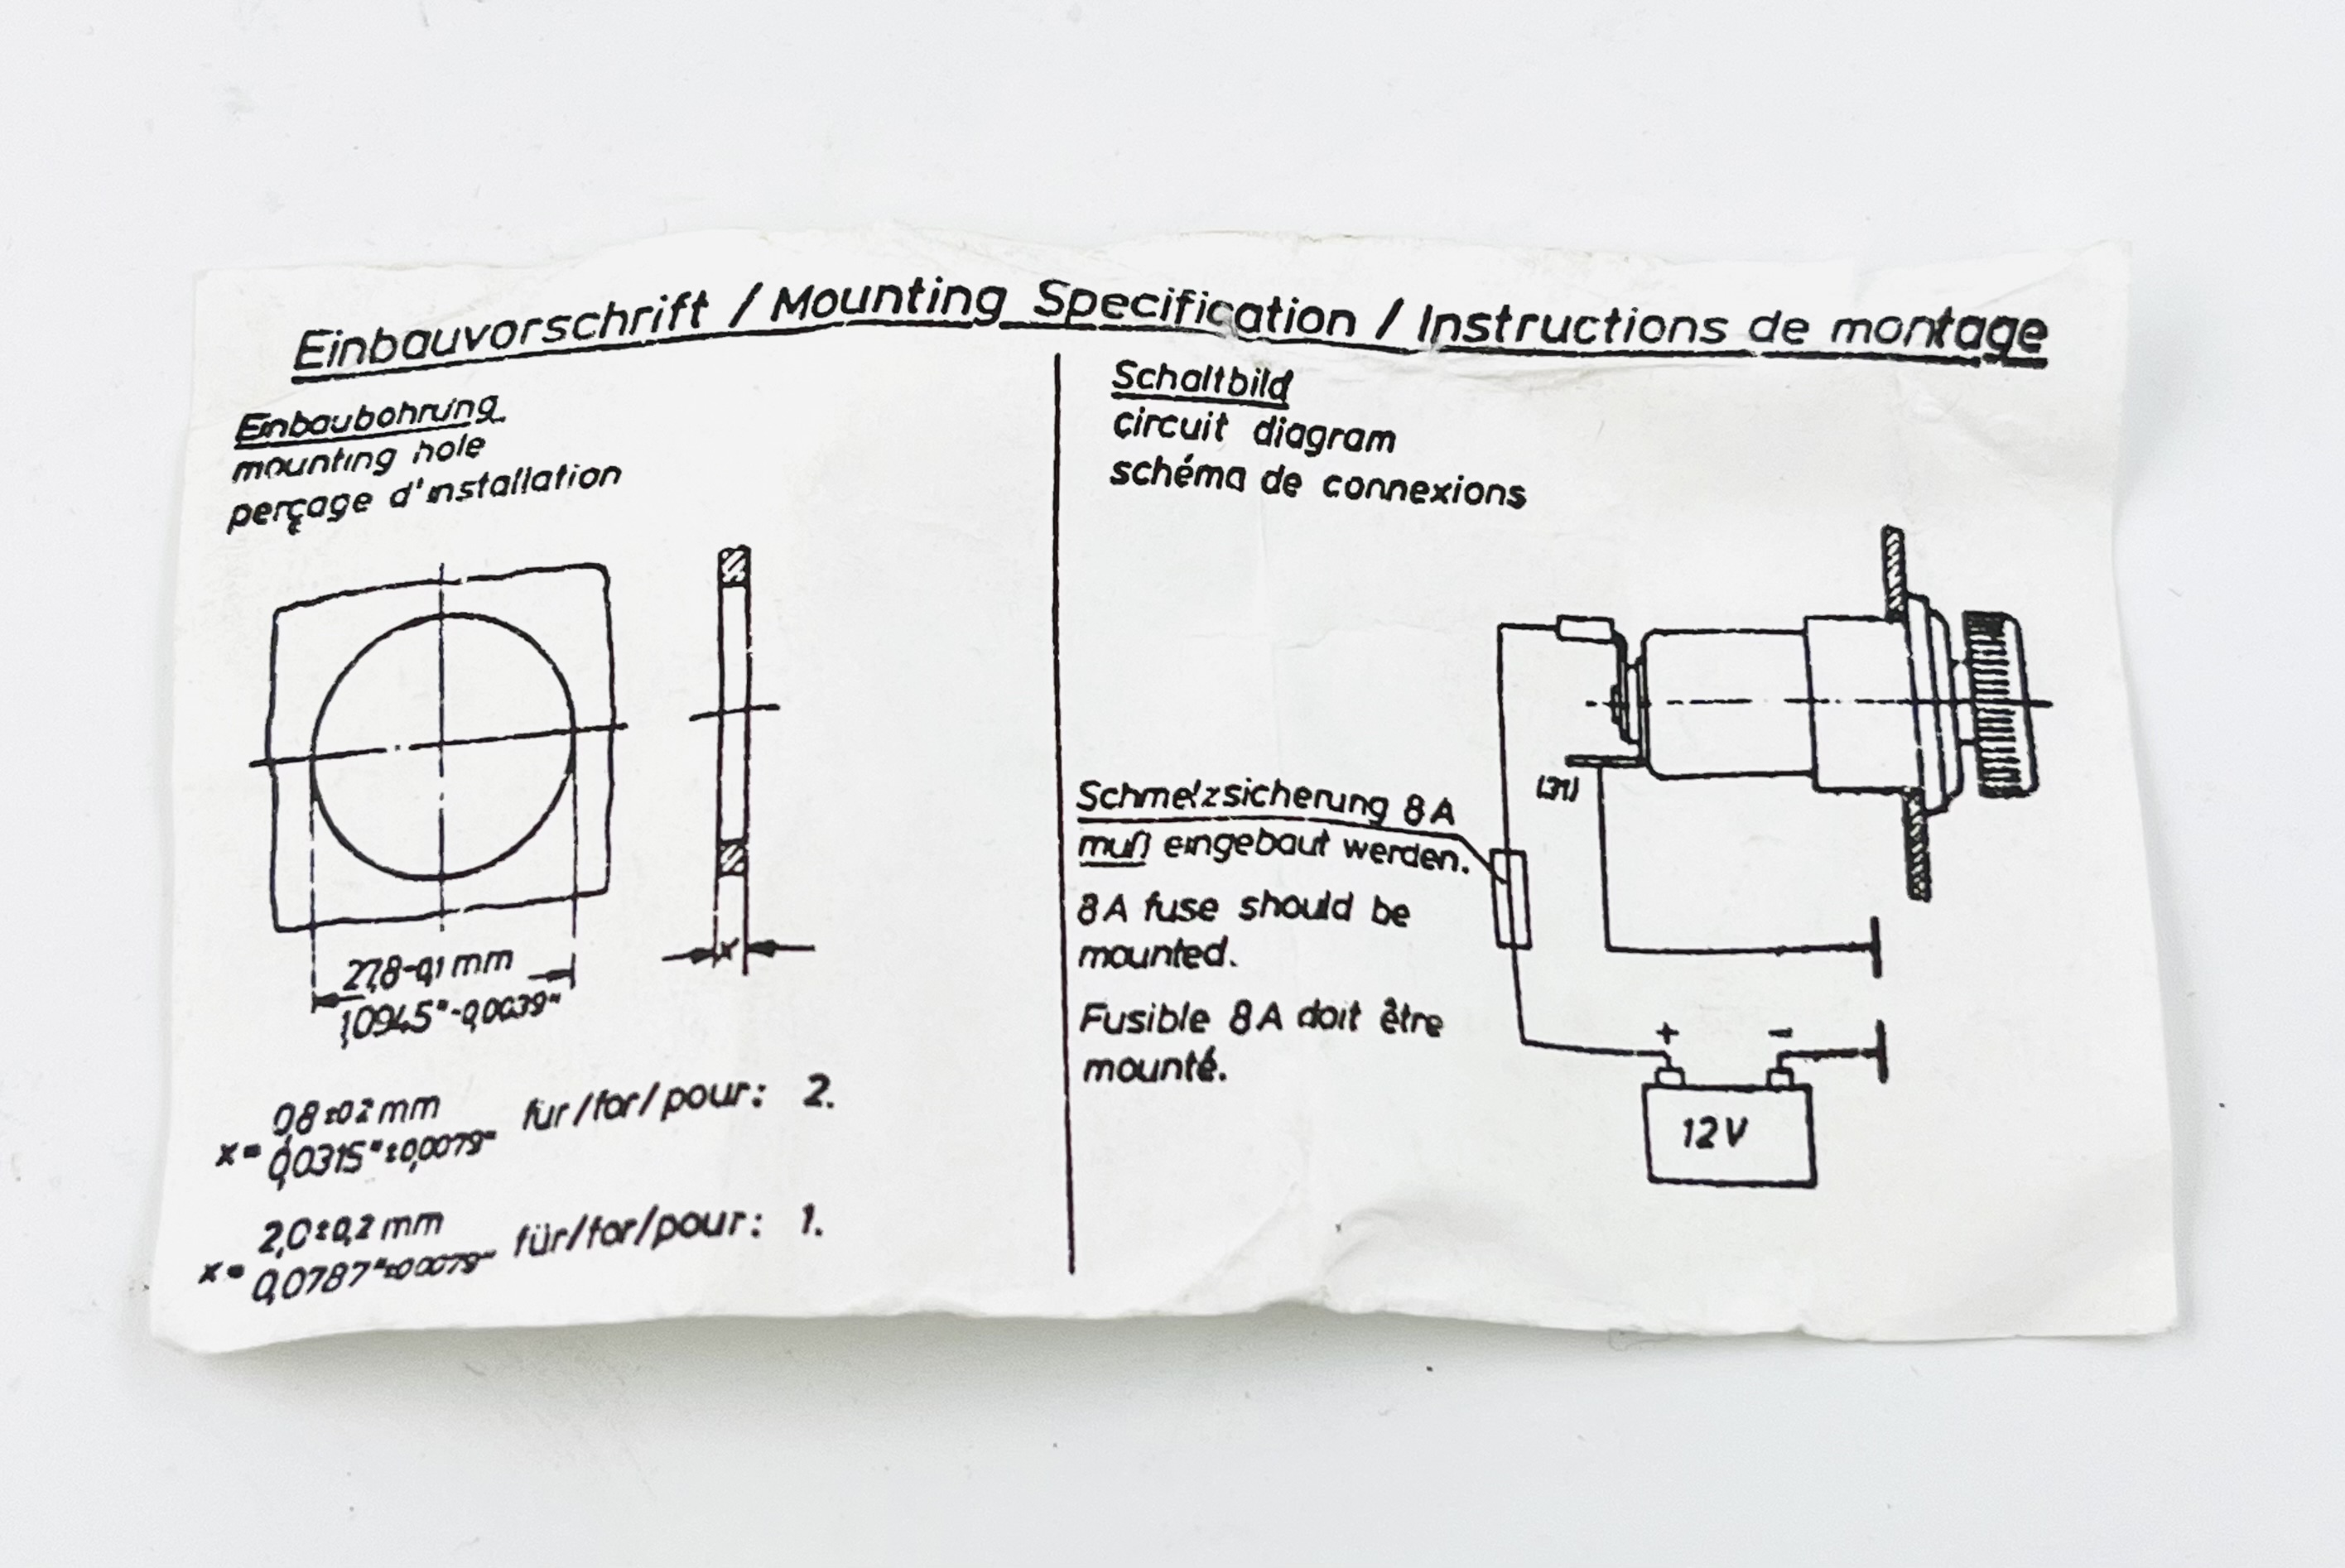 Einbauvorschrift / Mounting Specification / Instructions de montage
Einbaubohrung
mounting hole
perçage d'installation
27,8-0,1 mm
1,0945"-0,0039"
x
0,8±0,2 mm
x= 0,0315"±0,0079" für/for/pour: 2.
2,0±0,2 mm
x= 0,0787"±0,0079" für/for/pour: 1.
Schaltbild
circuit diagram
schéma de connexions
(31)
Schmelzsicherung 8A
muß eingebaut werden.
8A fuse should be
mounted.
Fusible 8A doit être
mounté.
+ −
12V